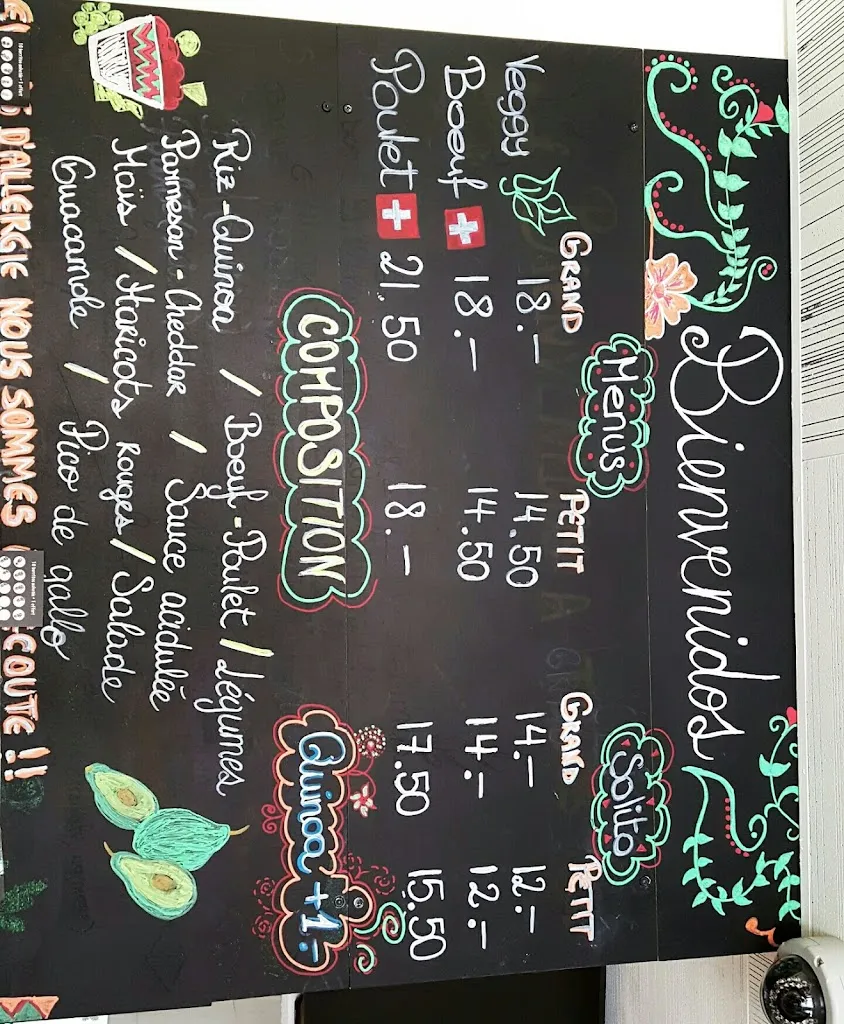 Bienvenidos
Menus Solito
GRAND PETIT GRAND PETIT
Veggy 18.- 14.50 14.- 12.-
Boeuf 18.- 14.50 14.- 12.-
Poulet 21.50 18.- 17.50 15.50
COMPOSITION Quinoa +1.-
Riz-Quinoa / Boeuf-Poulet / Légumes
Parmesan-Cheddar / Sauce acidulée
Maïs / Haricots rouges / Salade
Guacamole / Pico de gallo
D'ALLERGIE NOUS SOMMES COUTE !!